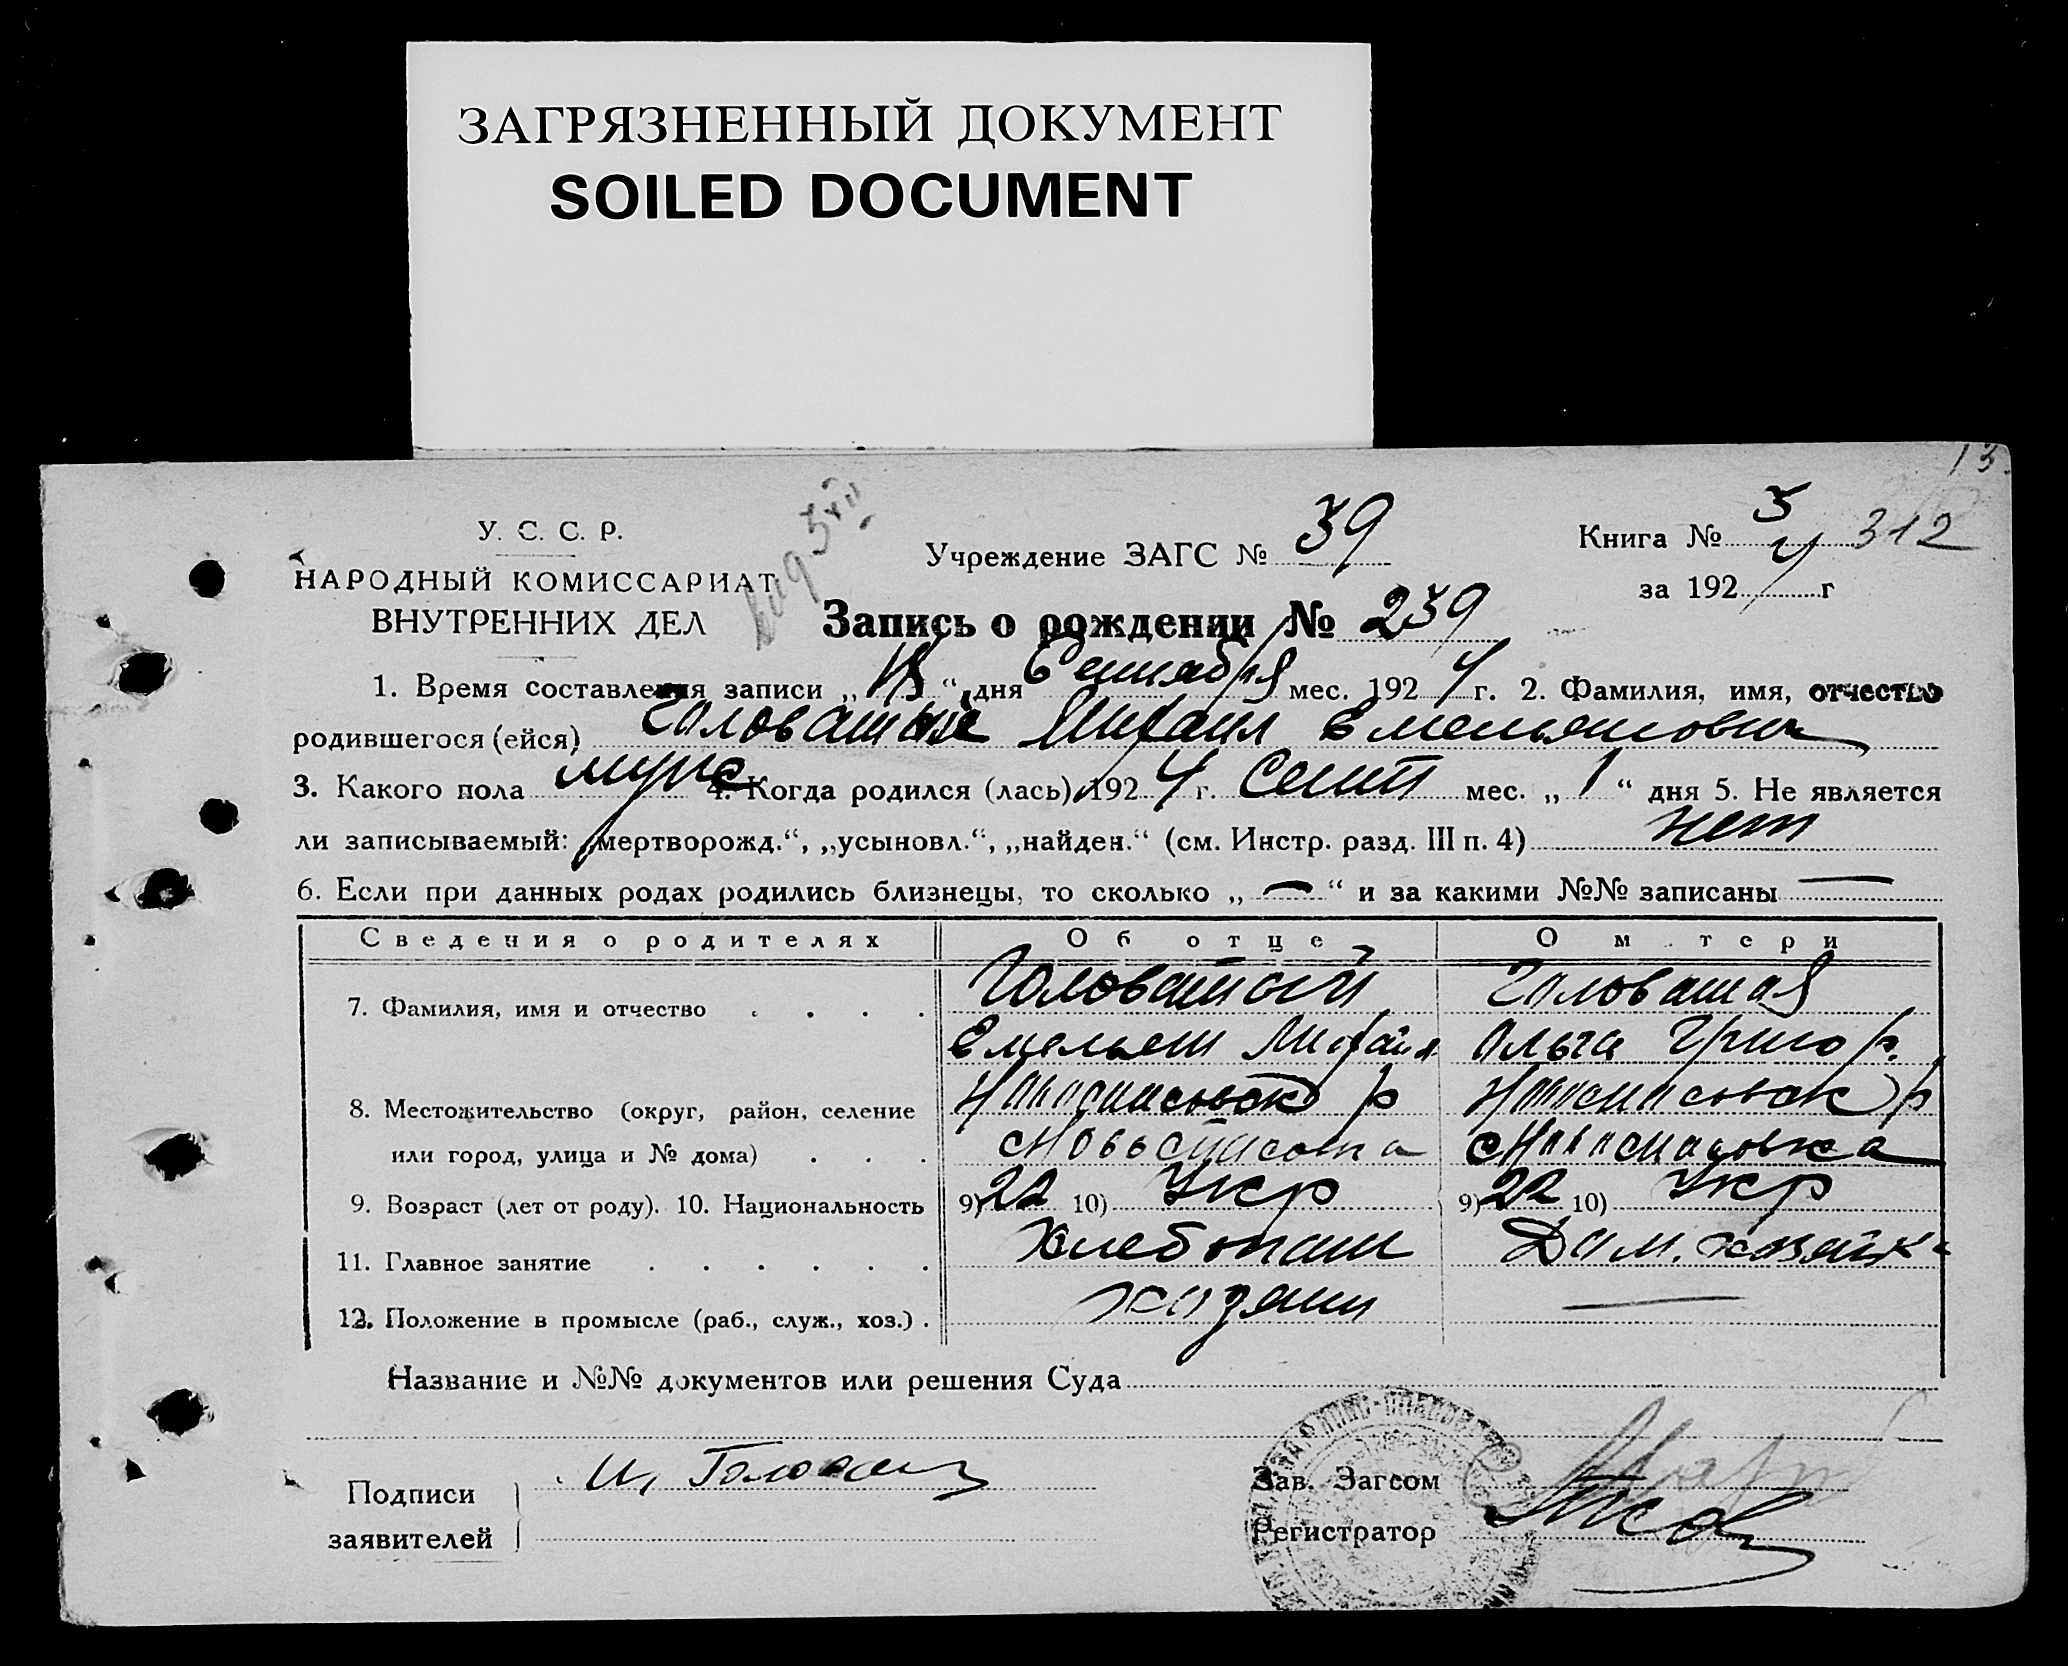 ЗАГРЯЗНЕННЫЙ ДОКУМЕНТ
SOILED DOCUMENT
13
У. С. С. Р.
НАРОДНЫЙ КОМИССАРИАТ
ВНУТРЕННИХ ДЕЛ
Учреждение ЗАГС № 39
Книга № 5 312
за 1924 г
Запись о рождении № 239
1. Время составления записи „ “ дня Сентября мес. 1924 г. 2. Фамилия, имя, отчество
родившегося (ейся) Головатый Михаил Емельянович
3. Какого пола муж 4. Когда родился (лась) 1924 г. Сент мес. „1“ дня 5. Не является
ли записываемый: „мертворожд.“, „усыновл.“, „найден.“ (см. Инстр. разд. III п. 4) нет
6. Если при данных родах родились близнецы, то сколько „—“ и за какими №№ записаны —
Сведения о родителях Об отце О м тери
7. Фамилия, имя и отчество Головатый Головатая
Емельян Михайл Ольга Григор.
8. Местожительство (округ, район, селение Новоспасовск р Новоспасовск р
или город, улица и № дома) с Новоспасовка с Новоспасовка
9. Возраст (лет от роду). 10. Национальность 9) 22 10) Укр 9) 22 10) Укр
11. Главное занятие Хлебопаш Дом. хозяйка
12. Положение в промысле (раб., служ., хоз.) хозяин —
Название и №№ документов или решения Суда
Подписи
заявителей
Зав. Загсом
Регистратор